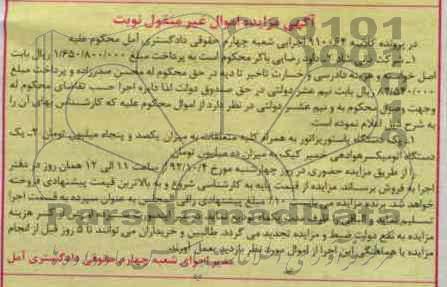 آگهی مزایده اموال غیر منقول نوبت
در پرونده کلاسه ۹۱۰۰۶۴ اجرایی شعبه چهارم حقوقی دادگستری آمل محکوم علیه
۱ـ شرکت داود رضایی باکر محکوم است به پرداخت مبلغ ۱/۶۵۰/۸۰۰/۰۰۰ ریال بابت
اصل خواسته و هزینه دادرسی و خسارت تاخیر تادیه در حق محکوم له محسن صدرزاده و پرداخت مبلغ
۸۲/۵۴۰/۰۰۰ ریال بابت نیم عشر دولتی در حق صندوق دولت لذا دایره اجرا حسب تقاضای محکوم له
وجهت وصول محکوم به و نیم عشر دولتی در نظر دارد از اموال محکوم علیه که کارشناس بهای آن را
به شرح ذیل اعلام نموده است.
۱ـ یک دستگاه پاستوریزاتور به همراه کلیه متعلقات به میزان یکصد و پنجاه میلیون تومان ۲ـ یک
دستگاه اتومیکسر هوادهی خمیر کیک به میزان ده میلیون تومان
را از طریق مزایده حضوری در روز چهارشنبه مورخ ۹۲/۱۰/۴ از ساعت ۱۱ الی ۱۲ همان روز در دفتر
اجرا به فروش برساند. مزایده از قیمت پایه به کارشناسی شروع و به بالاترین قیمت پیشنهادی فروخته
خواهد شد. برنده مزایده می بایست ۱۰٪ مبلغ پیشنهادی را فی المجلس به عنوان سپرده به قسمت اجرا
تسلیم نماید و الباقی را ظرف یک ماه کسر هزینه
مزایده به نفع دولت ضبط و مزایده تجدید می گردد. طالبین و خریداران می توانند تا ۵ روز قبل از انجام
مزایده با هماهنگی این اجرا از اموال مورد نظر بازدید بعمل آورند.
مدیر اجرای شعبه چهارم حقوقی دادگستری آمل
ParsNamadData